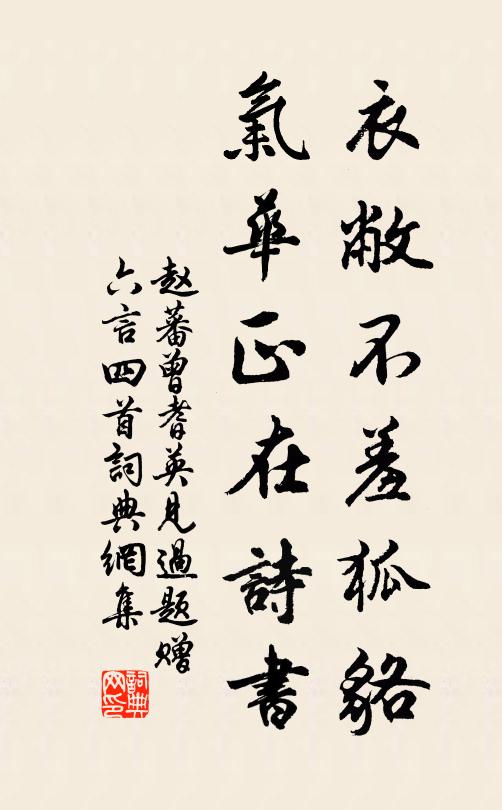 衣敝不羞狐貉
氣華正在詩書
赵蕃曾耆英見過題赠
六言四首詞典網集
詞典网印